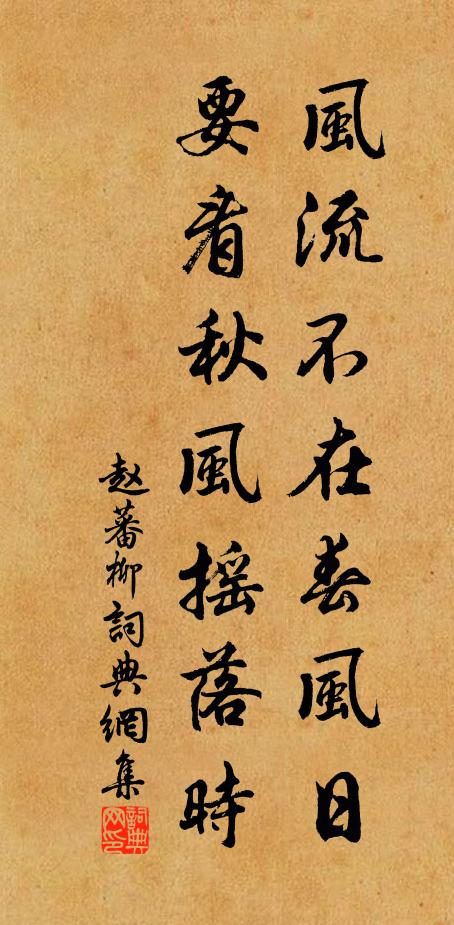 風流不在春風日
要看秋風摇落時
赵蕃柳詞典網集
詞典网印